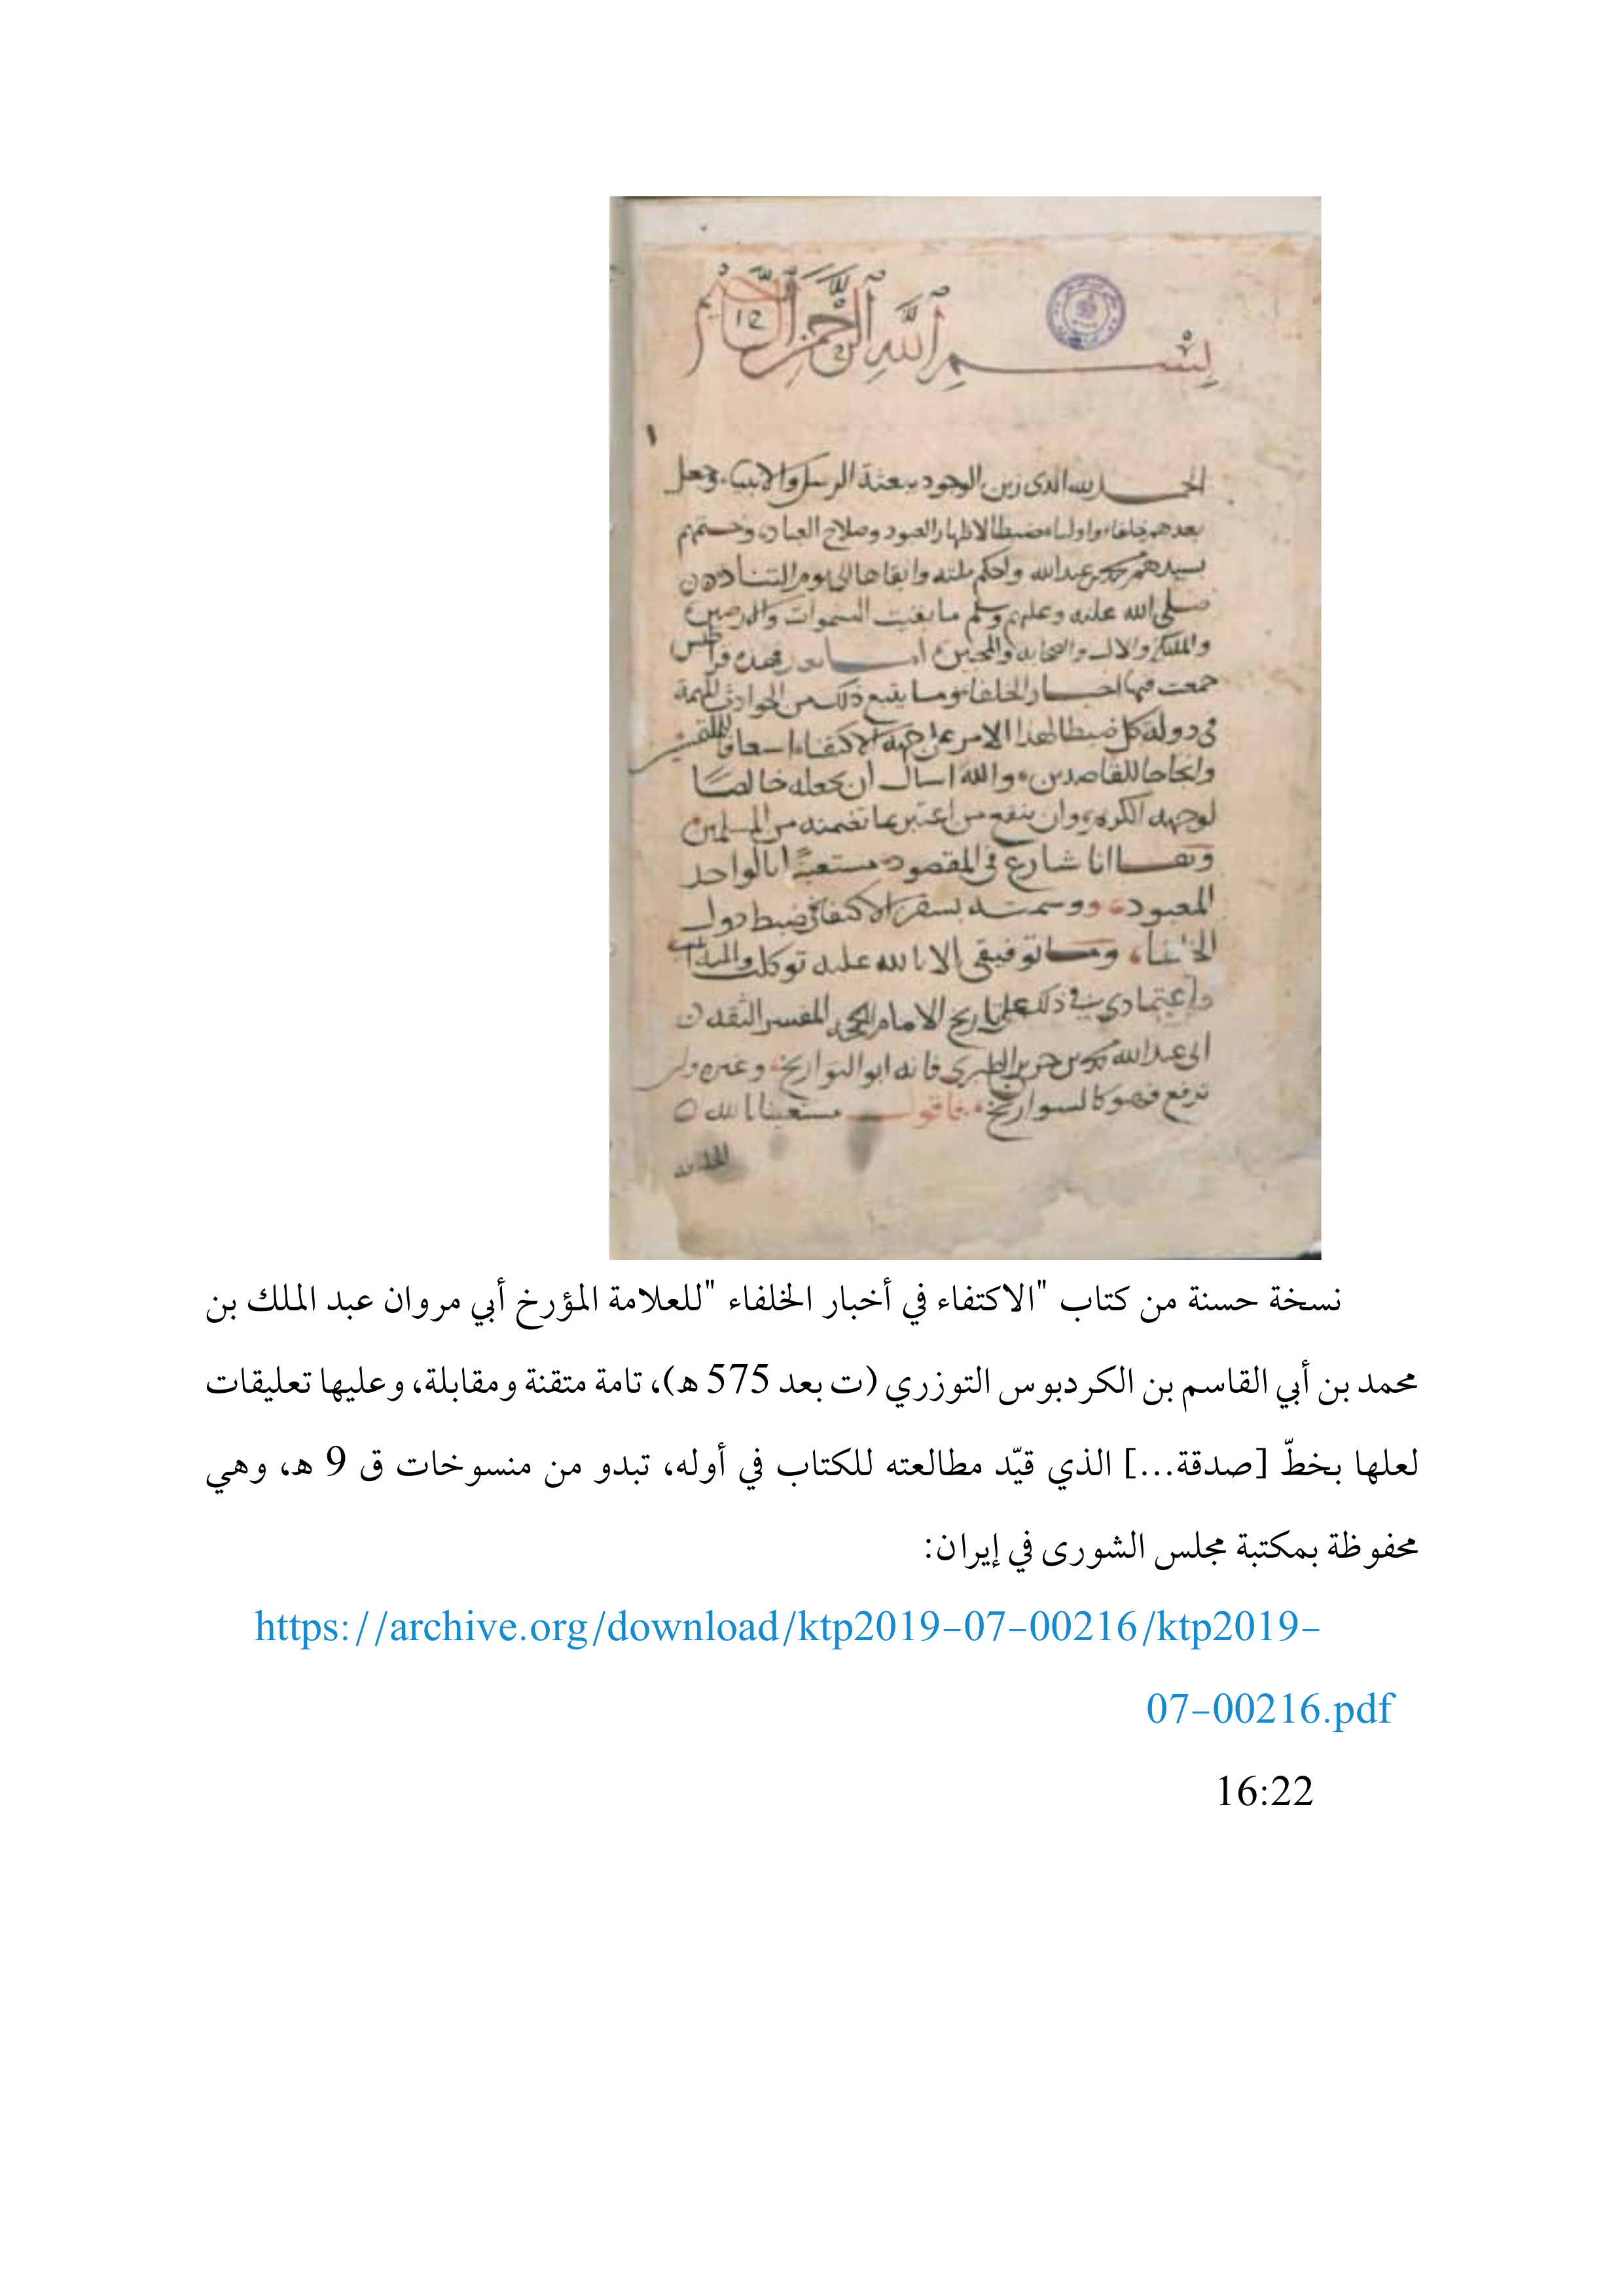 بسم الله الرحمن الرحيم
١
الحمد لله الذى زين الوجود ببعثة الرسل والانبياء وجعل
بعدهم خلفاء واولياء ضبطا لاظهار العبود وصلاح العباد وختمهم
بسيدهم محمد بن عبدالله واحكم ملته وابقاها الى يوم التناد
صلى الله عليه وعليهم وسلم ما بقيت السموات والارضين
والملئكة والال والصحابه والمحبين اما بعد فهذه
جمعت فيها اخبار الخلفاء وما يتبع ذلك من الحوادث المهمة
فى دولة كل ضبطا لهذا الامر على جهة الاكتفاء اسعافا
وانجاحا للقاصدين والله اسال ان يجعله خالصا
لوجهه الكريم وان ينفع من اعتبر بما تضمنه من المسلمين
وها انا شارع فى المقصود مستعينا بالواحد
المعبود ووسمته بسفر الاكتفا فى ضبط دول
الخلفا وما توفيقى الا بالله عليه توكلت واليه انيب
واعتمادى فى ذلك على تاريخ الامام المفسر الثقه
ابى عبدالله محمد بن جرير الطبرى فانه ابو التواريخ وغيره وان
ترفع فهو كالسواريخ فاقول مستعينا بالله
الحمد لله
نسخة حسنة من كتاب "الاكتفاء في أخبار الخلفاء "للعلامة المؤرخ أبي مروان عبد الملك بن
محمد بن أبي القاسم بن الكردبوس التوزري (ت بعد 575 هـ)، تامة متقنة ومقابلة، وعليها تعليقات
لعلها بخطّ [صدقة...] الذي قيّد مطالعته للكتاب في أوله، تبدو من منسوخات ق 9 هـ، وهي
محفوظة بمكتبة مجلس الشورى في إيران:
https://archive.org/download/ktp2019-07-00216/ktp2019-
07-00216.pdf
16:22